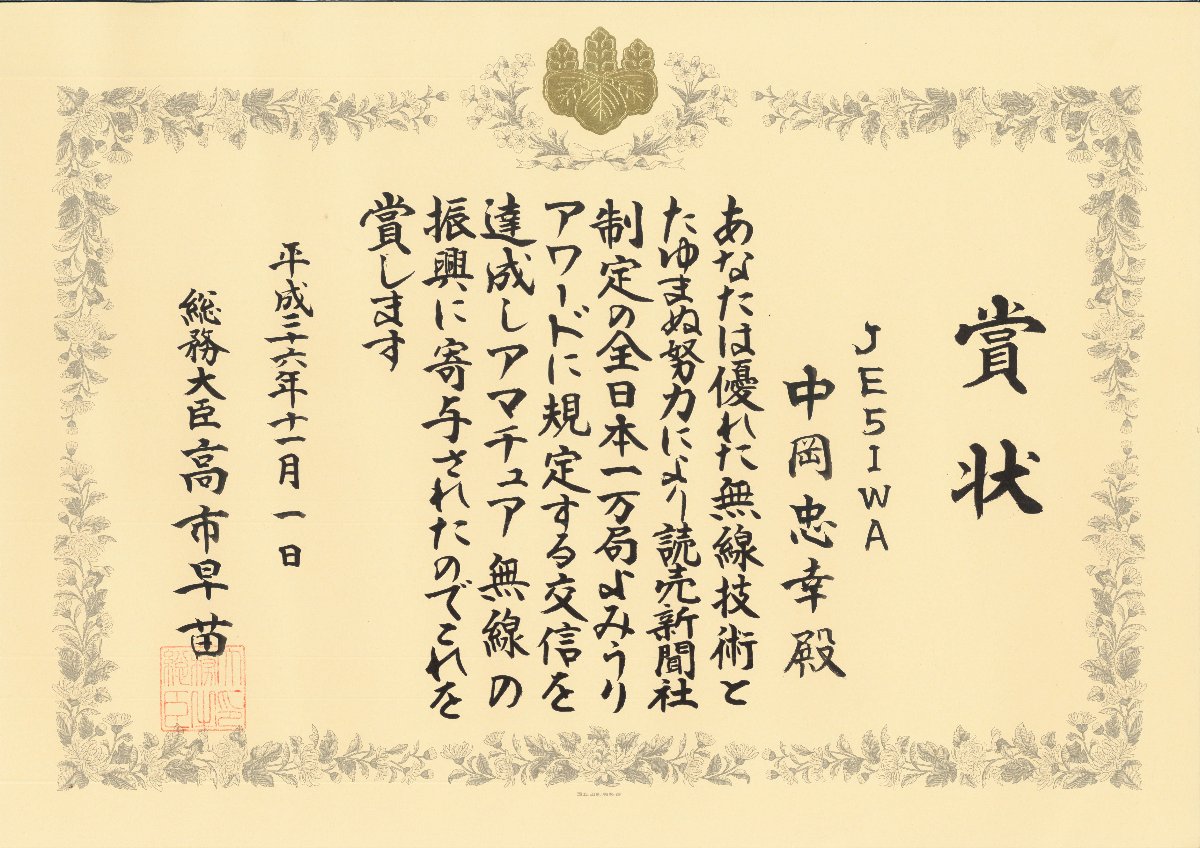 賞状
JE5IWA
中岡忠幸殿
あなたは優れた無線技術と
たゆまぬ努力により読売新聞社
制定の全日本一万局よみうり
アワードに規定する交信を
達成しアマチュア無線の
振興に寄与されたのでこれを
賞します
平成二十六年十一月一日
総務大臣高市早苗